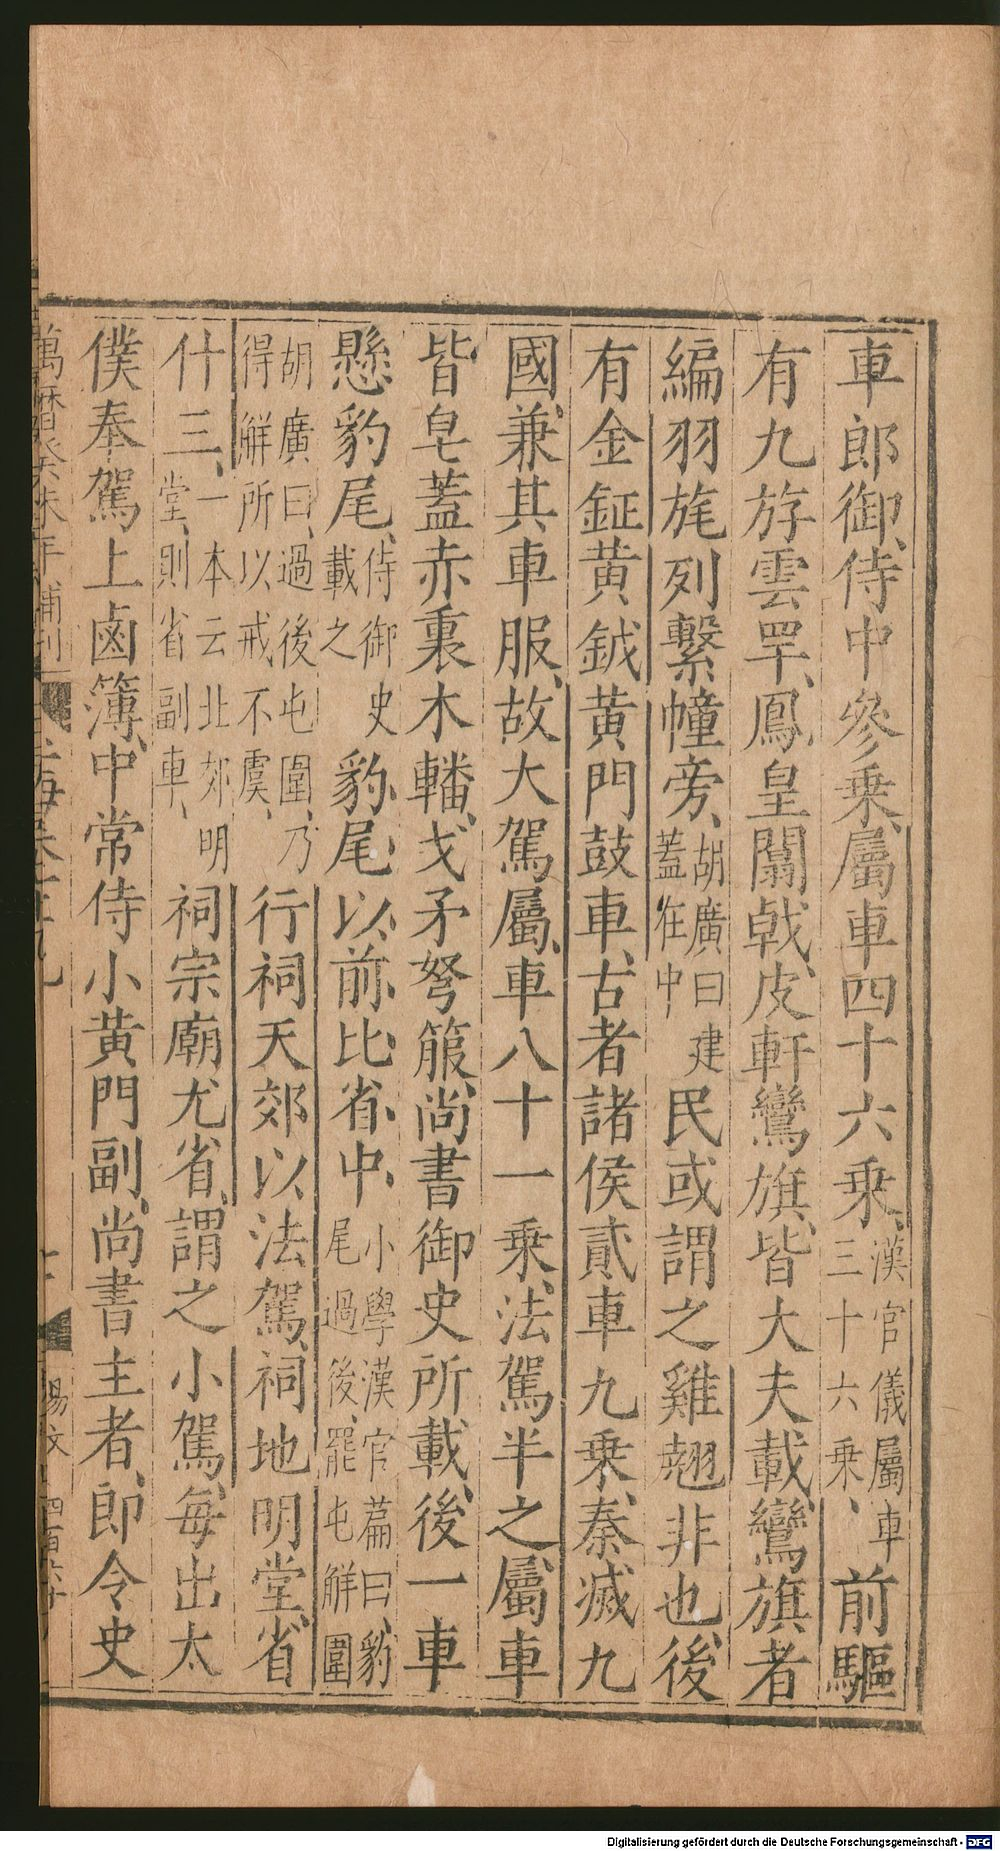 車郎御侍中參乗屬車四十六乗漢官儀屬車三十六乗前驅
有九斿雲䍐鳳皇闟戟皮軒鸞旗皆大夫載鸞旗者
編羽旄列繫幢旁胡廣曰建蓋在中民或謂之雞翹非也後
有金鉦黄鉞黄門鼓車古者諸侯貳車九乗秦滅九
國兼其車服故大駕屬車八十一乗法駕半之屬車
皆皂蓋赤裏木轓戈矛弩箙尚書御史所載後一車
懸豹尾侍御史載之豹尾以前比省中小學漢官篇曰豹尾過後罷屯解圍
胡廣曰過後屯圍乃得解所以戒不虞行祠天郊以法駕祠地明堂省
什三一本云北郊明堂則省副車祠宗廟尤省謂之小駕每出太
僕奉駕上鹵簿中常侍小黄門副尚書主者郎令史
萬曆癸未年補刊
楊文
Digitalisierung gefördert durch die Deutsche Forschungsgemeinschaft - DFG